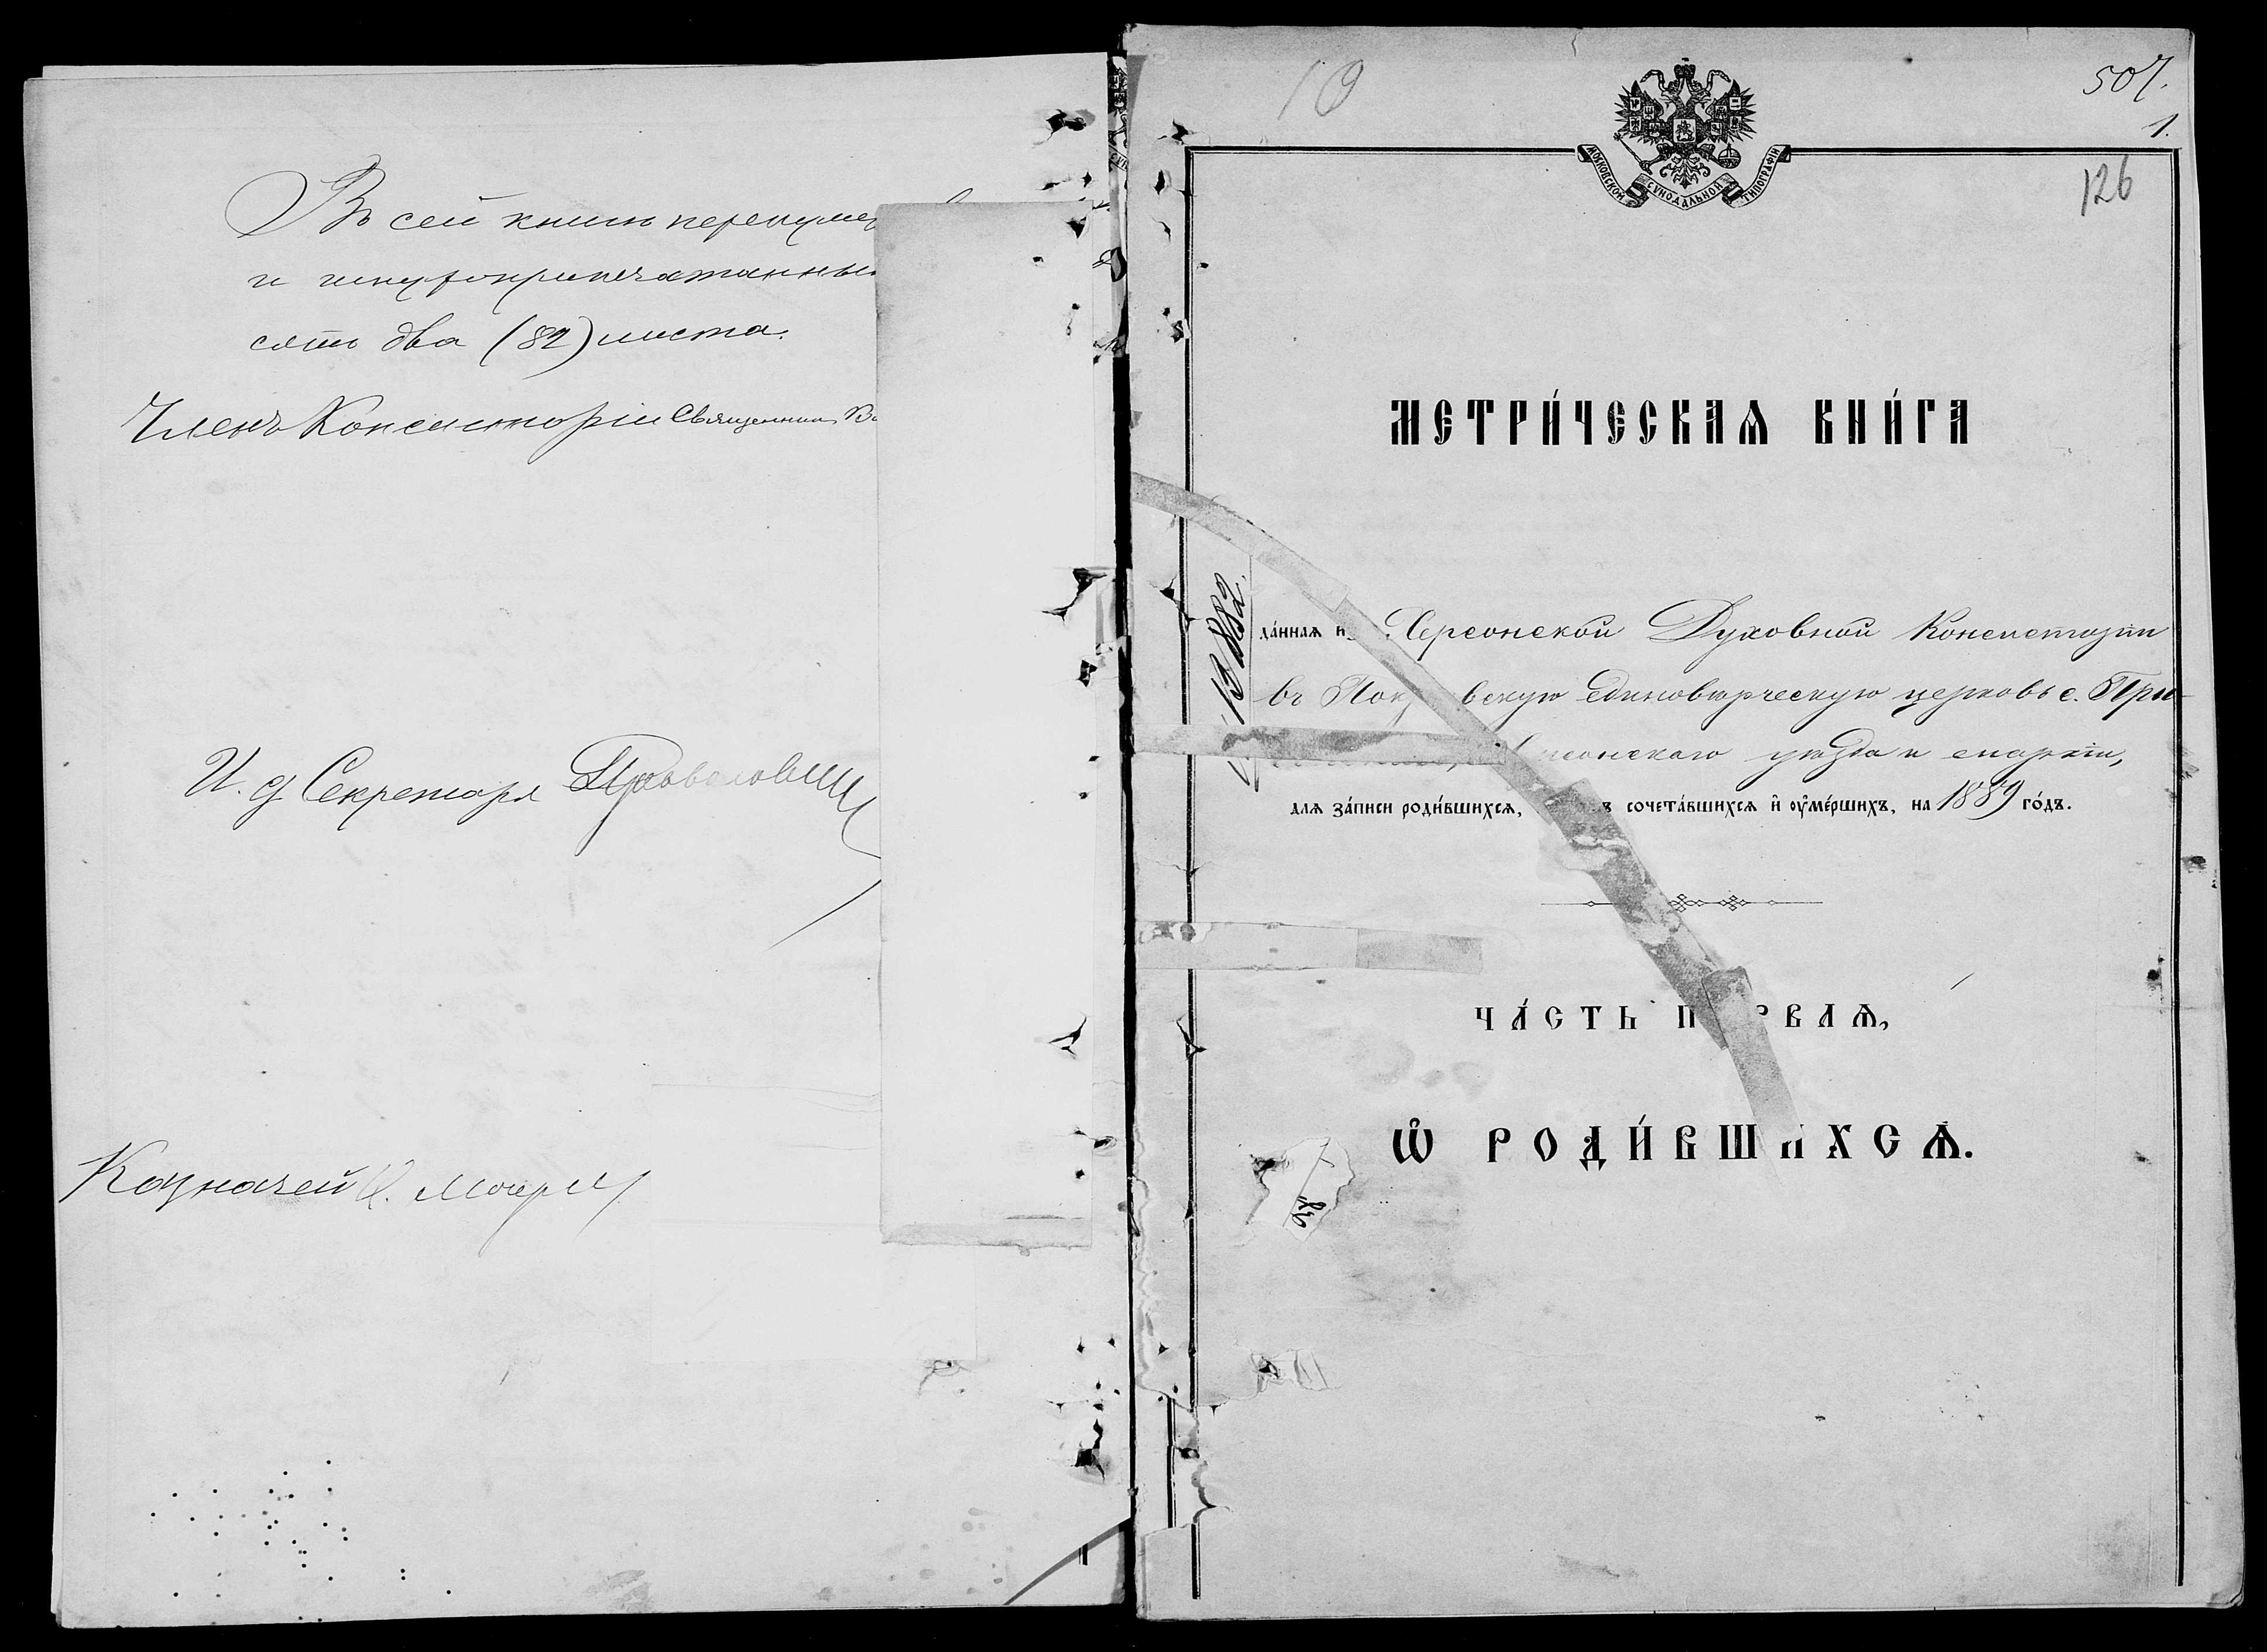 Въ сей книгѣ перенумер
и шнуроприпечатанны
сятъ два (82) листа.
Членъ Консисторіи Священникъ
И. д. Секретаря
Казначей
10
507.
1.
126
МОСКОВСКОЙ СѴНОДАЛЬНОЙ ТИПОГРАФІИ
МЕТРИ́ЧЕСКАѦ КНИ́ГА
№ 13882.
да́ннаѧ и Херсонской Духовной Консисторіи
въ Пок вскую единовѣрческую церковь с. При-
сонскаго уѣзда и епархіи,
для за́писи роди́вшихсѧ, въ сочета́вшихсѧ и҆ ᲂу҆ме́ршихъ, на 1889 го́дъ.
ЧА́СТЬ П РВАѦ,
Ѡ҆ РОДИ́ВШИХСѦ.